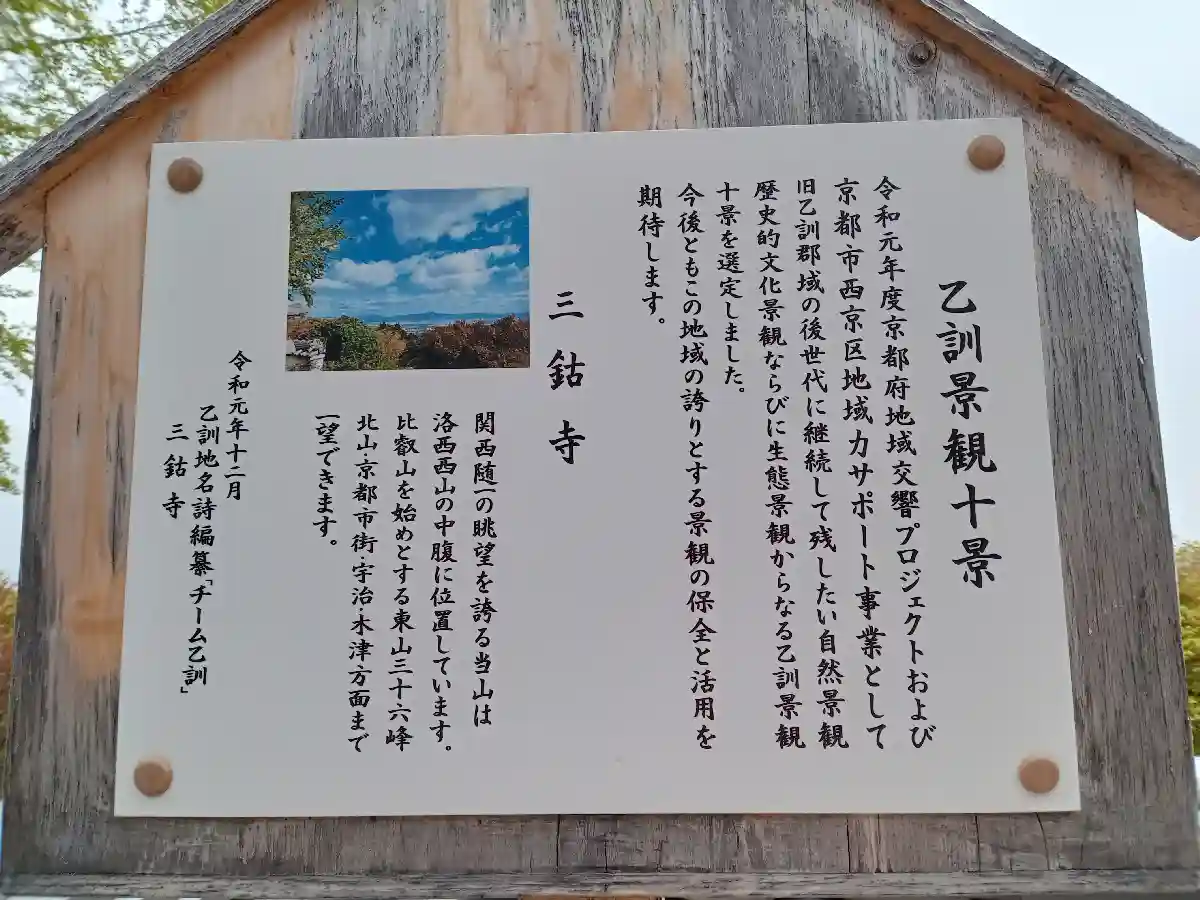 乙訓景観十景
令和元年度京都府地域交響プロジェクトおよび
京都市西京区地域力サポート事業として
旧乙訓郡域の後世代に継続して残したい自然景観
歴史的文化景観ならびに生態景観からなる乙訓景観
十景を選定しました。
今後ともこの地域の誇りとする景観の保全と活用を
期待します。
三鈷寺
関西随一の眺望を誇る当山は
洛西西山の中腹に位置しています。
比叡山を始めとする東山三十六峰
北山京都市街宇治・木津方面まで
一望できます。
令和元年十二月
乙訓地名詩編纂「チーム乙訓」
三鈷寺